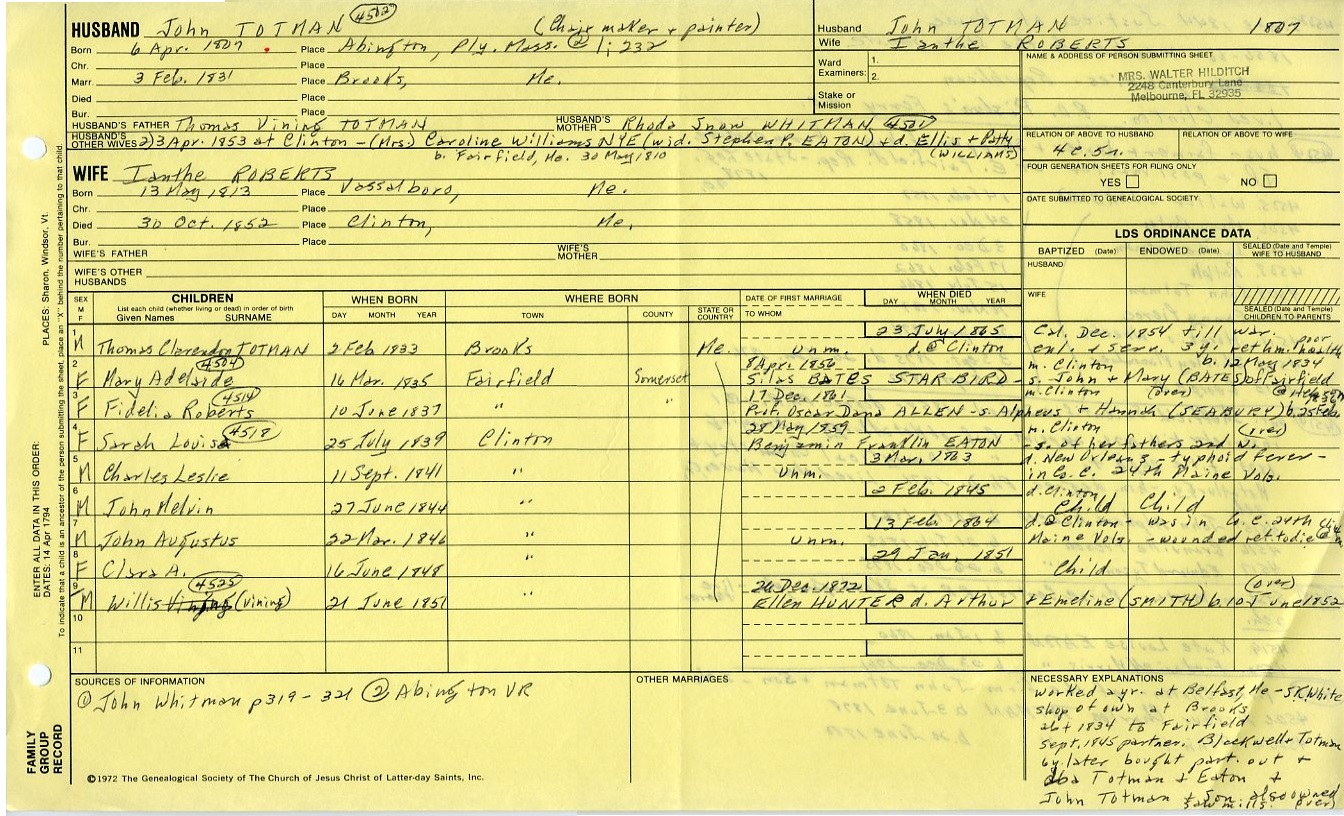 HUSBAND John TOTMAN 4502 (Chair maker + painter)
Born 6 Apr. 1807 Place Abington, Ply. Mass. ② 1; 232
Chr. Place
Marr. 3 Feb. 1831 Place Brooks, Me.
Died Place
Bur. Place
HUSBAND'S FATHER Thomas Vining TOTMAN HUSBAND'S MOTHER Rhoda Snow WHITMAN 4501
HUSBAND'S OTHER WIVES 2) 3 Apr. 1853 at Clinton - (Mrs) Caroline Williams NYE (wid. Stephen P. EATON) + d. Ellis + Patty (WILLIAMS)
b. Fairfield, Me. 30 May 1810
WIFE Ianthe ROBERTS
Born 13 May 1813 Place Vassalboro, Me.
Chr. Place
Died 30 Oct. 1852 Place Clinton, Me.
Bur. Place
WIFE'S FATHER WIFE'S MOTHER
WIFE'S OTHER HUSBANDS
Husband John TOTMAN 1807
Wife Ianthe ROBERTS
Ward Examiners: 1. 2.
Stake or Mission
NAME & ADDRESS OF PERSON SUBMITTING SHEET
MRS. WALTER HILDITCH
2248 Canterbury Lane
Melbourne, FL 32935
RELATION OF ABOVE TO HUSBAND RELATION OF ABOVE TO WIFE
4c. 5r.
FOUR GENERATION SHEETS FOR FILING ONLY
YES NO
DATE SUBMITTED TO GENEALOGICAL SOCIETY
LDS ORDINANCE DATA
BAPTIZED (Date) ENDOWED (Date) SEALED (Date and Temple) WIFE TO HUSBAND
HUSBAND
WIFE
SEALED (Date and Temple) CHILDREN TO PARENTS
SEX M F CHILDREN WHEN BORN WHERE BORN DATE OF FIRST MARRIAGE WHEN DIED
List each child (whether living or dead) in order of birth
Given Names SURNAME DAY MONTH YEAR TOWN COUNTY STATE OR COUNTRY TO WHOM DAY MONTH YEAR
1 23 July 1865 Cal. Dec. 1854 till war.
M Thomas Clarendon TOTMAN 2 Feb 1833 Brooks Me. Unm. d. @ Clinton enl. + serv. 3 yr. ret hm. Poor health
2 4504 8 Apr. 1856 m. Clinton b. 12 May 1834
F Mary Adelaide 16 Mar. 1835 Fairfield Somerset Silas BATES STARBIRD - s. John + Mary (BATES) of Fairfield
3 4514 17 Dec. 1861 m. Clinton (over)
F Fidelia Roberts 10 June 1837 " " Prof. Oscar Dana ALLEN - s. Alpheus + Hannah (SEABURY) b. 25 Feb.
4 4518 28 May 1859 m. Clinton (over)
F Sarah Louisa 25 July 1839 Clinton Benjamin Franklin EATON - s. of her fathers 2nd w.
5 3 Mar. 1863 d. New Orleans - typhoid fever -
M Charles Leslie 11 Sept. 1841 " Unm. in Co. E. 24th Maine Vols.
6 2 Feb. 1845 d. Clinton
M John Melvin 27 June 1844 " Child Child
7 13 Feb. 1864 d. @ Clinton - was in Co. E. 24th
M John Augustus 22 Mar. 1846 " Unm. Maine Vols. - wounded ret to die @
8 29 Jan. 1851
F Clara A. 16 June 1848 " Child
9 4525 26 Dec. 1872 (over)
M Willis Vining (Vining) 21 June 1851 " Ellen HUNTER d. Arthur + Emeline (SMITH) b. 10 June 1852
10
11
SOURCES OF INFORMATION
① John Whitman p 319 - 321 ② Abington VR
OTHER MARRIAGES
NECESSARY EXPLANATIONS
worked a yr. at Belfast, Me - S.K. White
shop of own at Brooks
abt 1834 to Fairfield
Sept. 1845 partner: Blackwell + Totman
by later bought part. out +
dba Totman + Eaton +
John Totman + Son also owned
saw mills. (over)
©1972 The Genealogical Society of The Church of Jesus Christ of Latter-day Saints, Inc.
FAMILY GROUP RECORD
ENTER ALL DATA IN THIS ORDER:
DATES: 14 Apr 1794
PLACES: Sharon, Windsor, Vt.
To indicate that a child is an ancestor of the person submitting the sheet, place an "X" behind the number pertaining to that child.